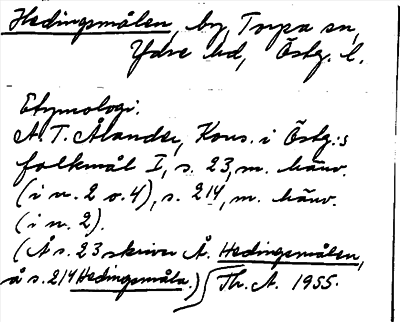 Hedingsmålen, by, Torpa sn,
Ydre hd, Östg. l.
Etymologi.
A. T. Ålander, Kons. i Östg:s
folkmål I, s. 23, m. hänv.
(i n. 2 o. 4), s. 214, m. hänv.
(i n. 2).
(Å s. 23 skriver Å. Hedingsmålen,
å s. 214 Hedingsmåla.) Th. A. 1955.